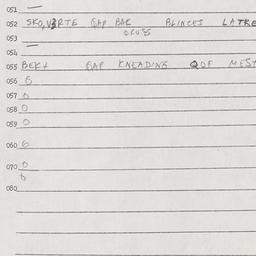 051 —
052 SKO,V3RTE GAP BAR BLINCES LATKE
053 DRUGS
054 —
055 BEKH GAP KNEADING OF MEST
056 0
057 0
058 0
059 0
060 0
070 0
080 0